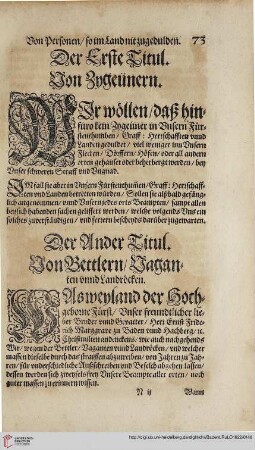 Von Personen / so im Land nit zugedulden. 73
Der Erste Titul.
Von Zygeunern.
Wir wöllen / daß hin-
füro kein Zygeuner in Unsern Für-
stenthumben / Graff: Herrschafften und
Landen geduldet / viel weniger inn Unsern
Flecken / Dörffern / Höfen / oder all andern
orten gehauset oder beherberget werden / bey
Unser schweren Straff und Ungnad.
Im fall sie aber in Unsern Fürstenthumen / Graff: Herrschaff-
ten und Landen betretten würden / Sollen sie alsbald gefäng-
lich angenommen / und Unser jedes orts Beampten / sampt allen
bey sich habenden sachen geliffert werden / welche volgends Uns ein
solches zuverständigen / und fernern bescheyds darüber zugewarten.
Der Ander Titul.
Von Bettlern / Vagan-
ten unnd Landröcken.
Was weyland der Hoch-
geborne Fürst / Unser freundtlicher lie-
ber Bruder und Gevatter / Herr Ernst Fride-
rich Marggrave zu Baden und Hachberg / ec.
Christmilten andenckens / wie auch nachgehends
Wir / wegen der Bettler / Vaganten und Landröcken / und welcher
massen dieselbe durch das strauffen abzuwerben / von Jahren zu Jah-
ren / für underschiedliche Außschreiben und Befelch abgehen lassen /
dessen werden sich zweyfelsfrey Unsere Beampte aller orten / noch
guter massen zuerinnern wissen.
N ij Wann